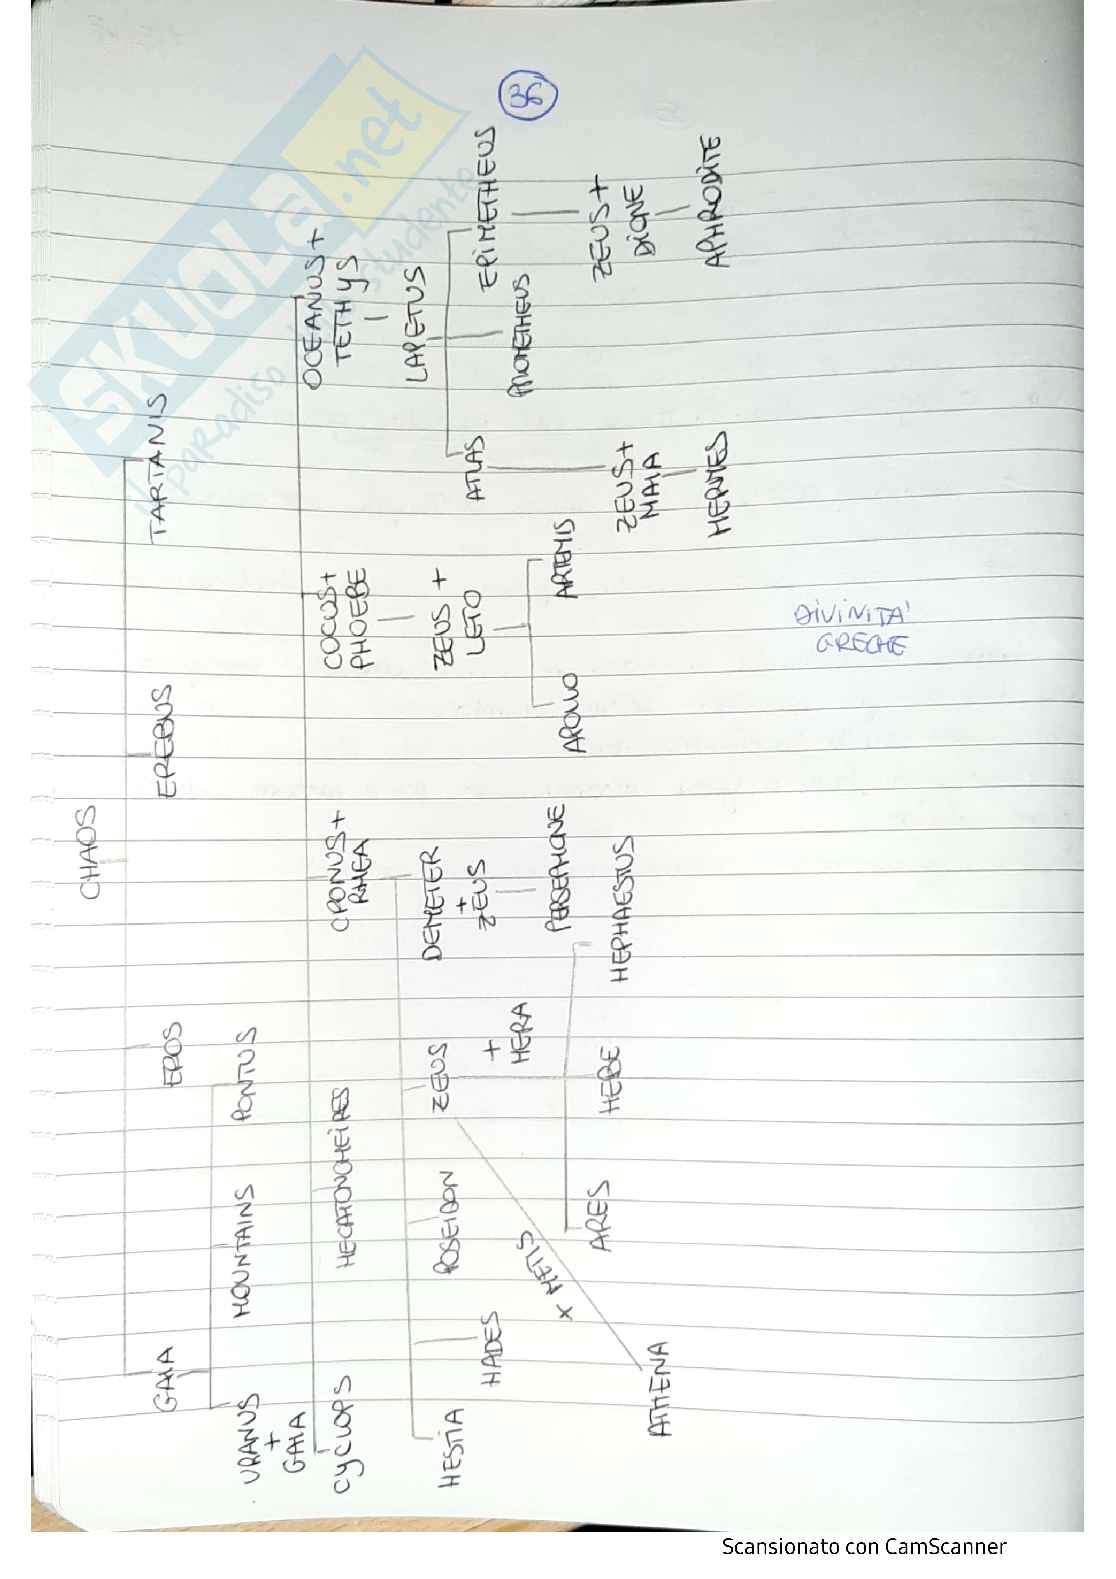 36
CHAOS
GAIA
EROS
EREBUS
TARTANIS
URANUS
+
GAIA
MOUNTAINS
PONTUS
CYCLOPS
HECATONCHEIRES
CRONUS+
RHEA
COCUS+
PHOEBE
OCEANUS+
TETHYS
HESTIA
HADES
POSEIDON
ZEUS
+
HERA
DEMETER
+
ZEUS
ZEUS +
LETO
LAPETUS
ATLAS
PROMETHEUS
EPIMETHEUS
x METIS
ATHENA
ARES
HEBE
HEPHAESTUS
PERSEPHONE
APOLLO
ARTEMIS
ZEUS+
MAIA
HERMES
ZEUS+
DIONE
APHRODITE
DIVINITA'
GRECHE
SKUOLA.net
il paradiso dello studente
Scansionato con CamScanner